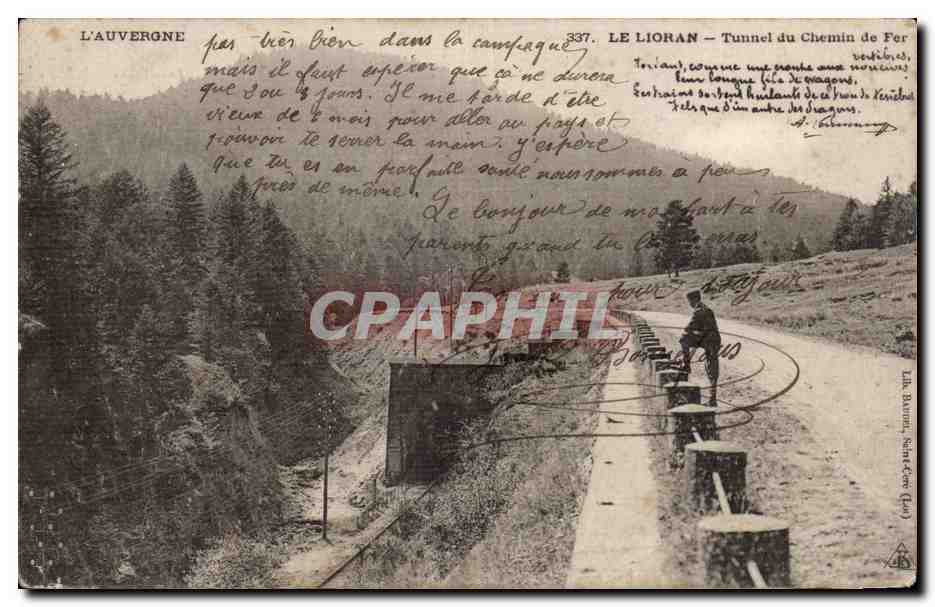 L'AUVERGNE
337. LE LIORAN – Tunnel du Chemin de Fer
vertèbres,
comme une croûte aux
leur longue file de wagons,
Les trains sortent hurlants de ce trou de
Tels que d'un antre des dragons.
pas très bien dans la campagne
mais il faut espérer que ça ne durera
que 2 ou 3 jours. Il me tarde d'être
vieux de 2 mois pour aller au pays et
pouvoir te serrer la main. J'espère
que tu es en parfaite santé nous sommes a peu
près de même.
Le bonjour de ma part à tes
parents quand tu
pour
toujour
CPAPHIL
Lib. BAUDEL, Saint-Céré (Lot)